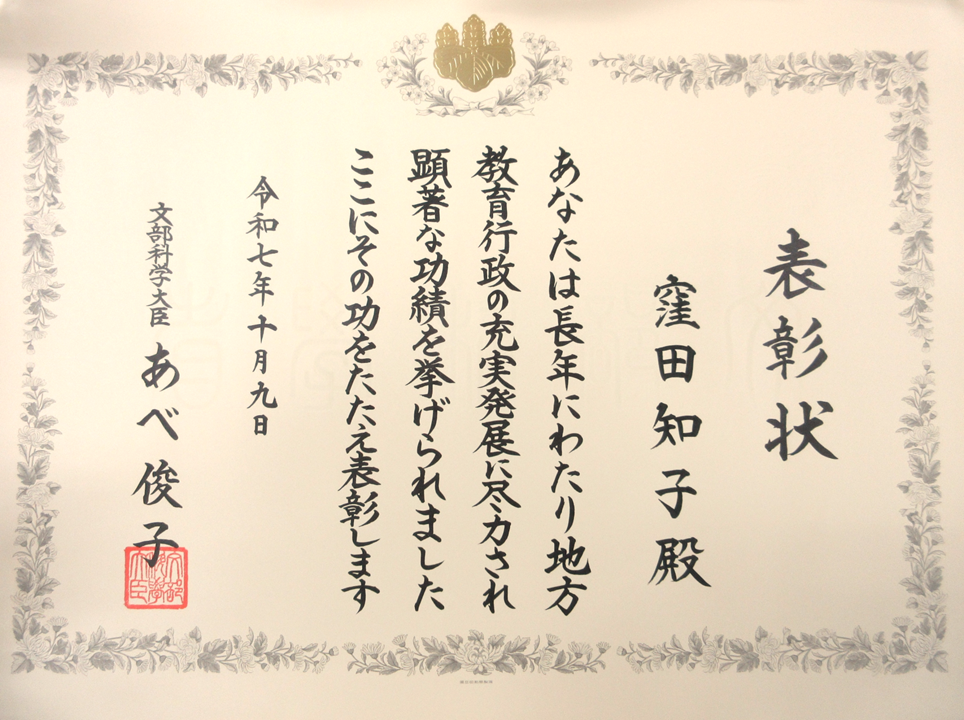 表彰状
窪田知子殿
あなたは長年にわたり地方
教育行政の充実発展に尽力され
顕著な功績を挙げられました
ここにその功をたたえ表彰します
令和七年十月九日
文部科学大臣 あべ俊子
文部科学大臣